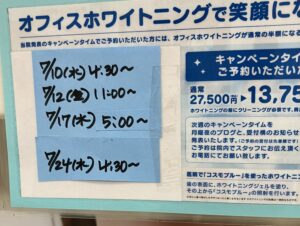 オフィスホワイトニングで笑顔にな
当院発表のキャンペーンタイムでご予約いただいた方には、オフィスホワイトニングが通常の半額になる
7/10(水) 4:30～
7/12(金) 11:00～
7/17(水) 5:00～
7/24(水) 4:30～
キャンペーンタイム
ご予約いただい
通常
27,500円 13,75
ホワイトニングの前にクリーニングが必要です。
次週のキャンペーンタイムを
月曜夜のブログと、受付横のお知らせ
発表いたします。
ご予約は院内でスタッフにお伝え頂く
お電話にてお願い致します。
医院で「コスモブルー」を使ったホワイトニン
歯の表面に、ホワイトニングジェルを塗り、
その上から「コスモブルー」の照射を行います。